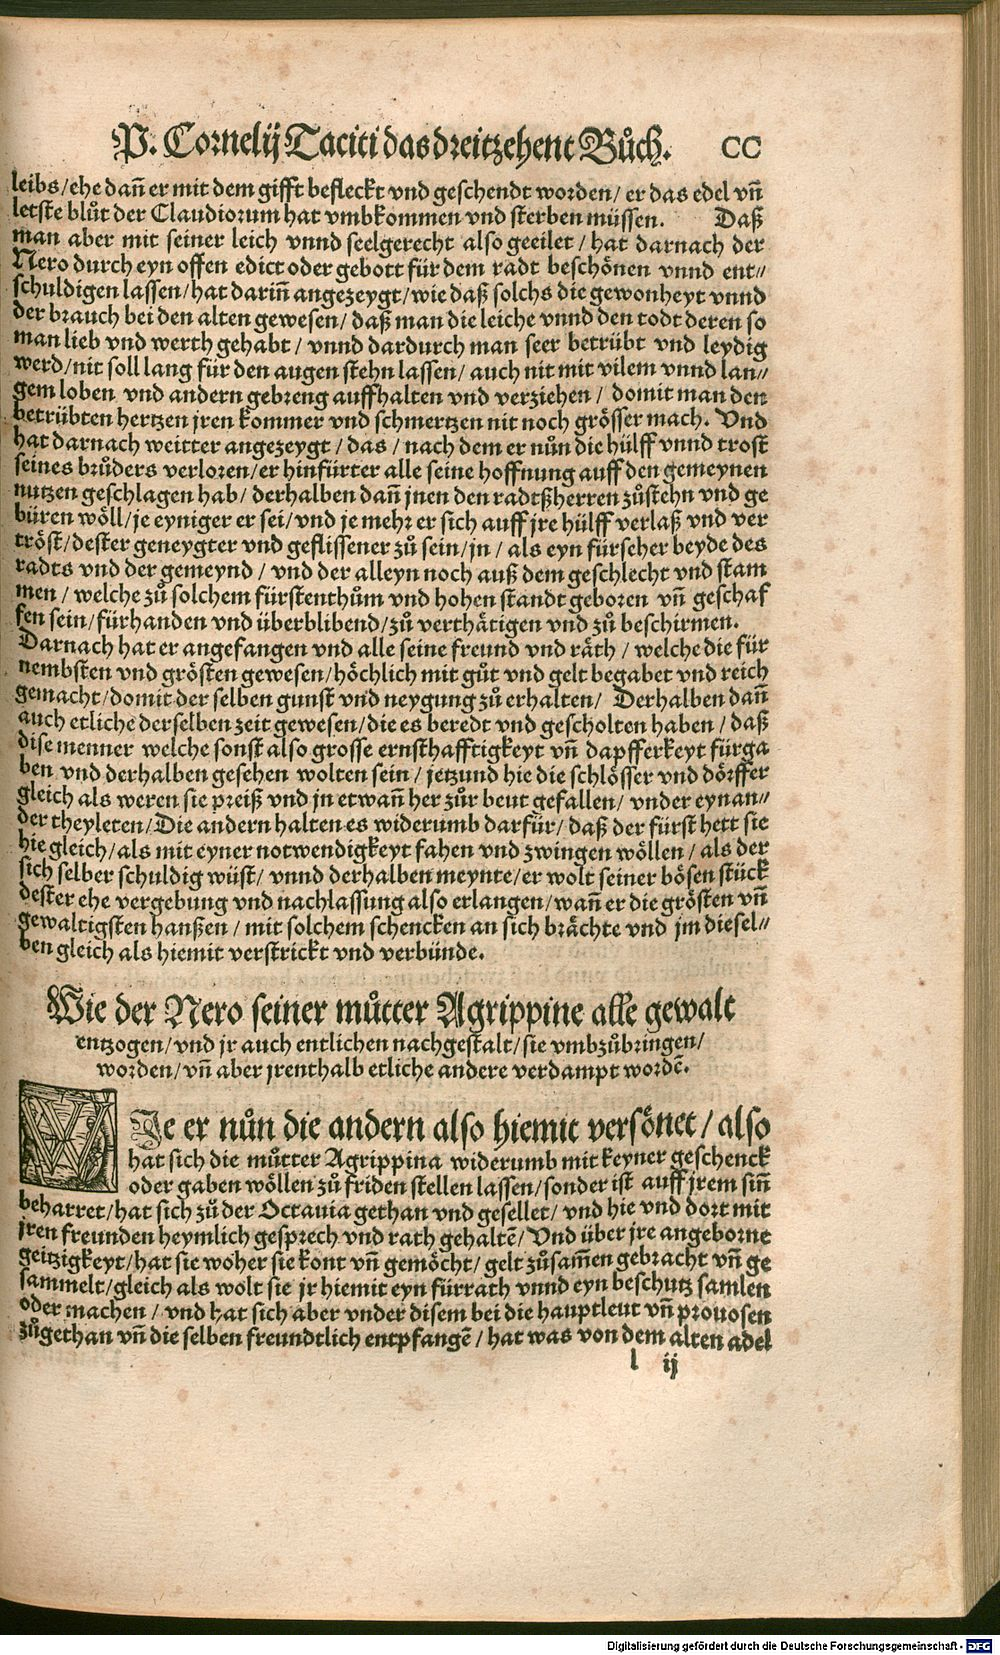 P. Cornelij Taciti das dreitzehent Bůch. CC
leibs/ehe dañ er mit dem gifft befleckt vnd geschendt worden/ er das edel vñ
letste blůt der Claudiorum hat vmbkommen vnd sterben müssen. Daß
man aber mit seiner leich vnnd seelgerecht also geeilet / hat darnach der
Nero durch eyn offen edict oder gebott für dem radt beschönen vnnd ent⸗
schuldigen lassen/hat dariñ angezeygt/wie daß solchs die gewonheyt vnnd
der brauch bei den alten gewesen/ daß man die leiche vnnd den todt deren so
man lieb vnd werth gehabt / vnnd dardurch man seer betrübt vnd leydig
werd/nit soll lang für den augen stehn lassen/ auch nit mit vilem vnnd lan⸗
gem loben vnd andern gebreng auffhalten vnd verziehen / domit man den
betrübten hertzen jren kommer vnd schmertzen nit noch grösser mach. Vnd
hat darnach weitter angezeygt / das / nach dem er nůn die hülff vnnd trost
seines brůders verloren/er hinfürter alle seine hoffnung auff den gemeynen
nutzen geschlagen hab/ derhalben dañ jnen den radtßherren zůstehn vnd ge
büren wöll/je eyniger er sei/vnd je mehr er sich auff jre hülff verlaß vnd ver
tröst/dester geneygter vnd geflissener zů sein/jn / als eyn fürseher beyde des
radts vnd der gemeynd / vnd der alleyn noch auß dem geschlecht vnd stam
men / welche zů solchem fürstenthům vnd hohen standt geboren vñ geschaf
fen sein/fürhanden vnd überblibend/zů verthätigen vnd zů beschirmen.
Darnach hat er angefangen vnd alle seine freund vnd räth / welche die für
nembsten vnd grösten gewesen/höchlich mit gůt vnd gelt begabet vnd reich
gemacht/domit der selben gunst vnd neygung zů erhalten/ Derhalben dañ
auch etliche derselben zeit gewesen/die es beredt vnd gescholten haben / daß
dise menner welche sonst also grosse ernsthafftigkeyt vñ dapfferkeyt fürga
ben vnd derhalben gesehen wolten sein / jetzund hie die schlösser vnd dörffer
gleich als weren sie preiß vnd jn etwañ her zůr beut gefallen/ vnder eynan⸗
der theyleten/Die andern halten es widerumb darfür/ daß der fürst hett sie
hie gleich/als mit eyner notwendigkeyt fahen vnd zwingen wöllen / als der
sich selber schuldig wüst/ vnnd derhalben meynte/er wolt seiner bösen stück
dester ehe vergebung vnd nachlassung also erlangen/wañ er die grösten vñ
gewaltigsten hanßen / mit solchem schencken an sich brächte vnd jm diesel⸗
ben gleich als hiemit verstrickt vnd verbünde.
Wie der Nero seiner můtter Agrippine alle gewalt
entzogen/vnd jr auch entlichen nachgestalt/sie vmbzůbringen/
worden/vñ aber jrenthalb etliche andere verdampt wordẽ.
WJe er nůn die andern also hiemit versönet/also
hat sich die můtter Agrippina widerumb mit keyner geschenck
oder gaben wöllen zů friden stellen lassen/sonder ist auff jrem siñ
beharret/hat sich zů der Octauia gethan vnd gesellet/vnd hie vnd dort mit
jren freunden heymlich gesprech vnd rath gehaltẽ/Vnd über jre angeborne
geitzigkeyt/hat sie woher sie kont vñ gemöcht/ gelt zůsam̃en gebracht vñ ge
sammelt/gleich als wolt sie jr hiemit eyn fürrath vnnd eyn beschutz samlen
oder machen / vnd hat sich aber vnder disem bei die hauptleut vñ prouosen
zůgethan vñ die selben freundtlich entpfangẽ / hat was von dem alten adel
l ij
Digitalisierung gefördert durch die Deutsche Forschungsgemeinschaft - DFG